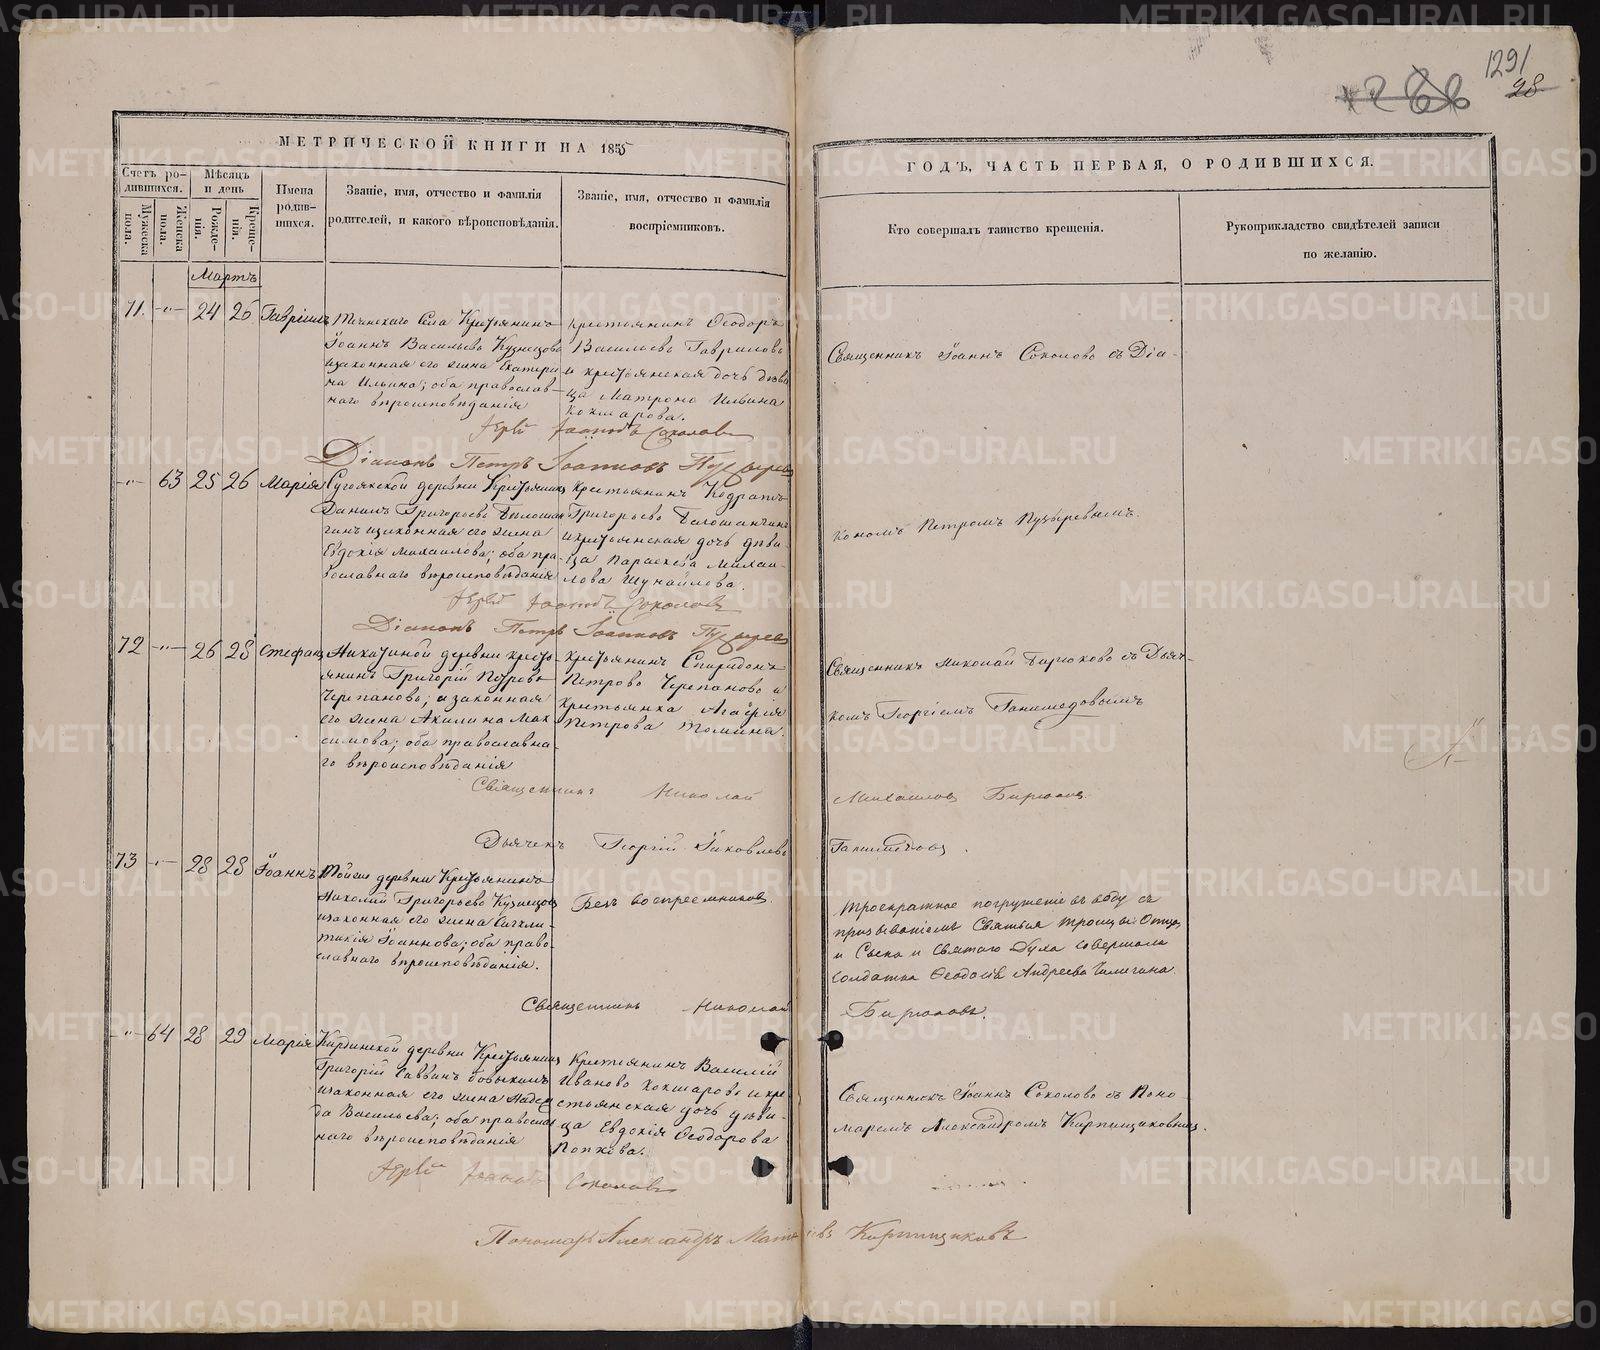 1291
28
МЕТРИЧЕСКОЙ КНИГИ НА 1855
ГОДЪ, ЧАСТЬ ПЕРВАЯ, О РОДИВШИХСЯ.
Счетъ ро-
дившихся.
Мужеска
пола.
Женска
пола.
Мѣсяцъ
и день
Рожде-
нія.
Креще-
нія.
Имена
родив-
шихся.
Званіе, имя, отчество и фамилія
родителей, и какого вѣроисповѣданія.
Званіе, имя, отчество и фамилія
воспріемниковъ.
Кто совершалъ таинство крещенія.
Рукоприкладство свидѣтелей записи
по желанію.
Мартъ
71. -"- 24 26 Гавріилъ
Теченскаго Села Крестьянинъ
Іоаннъ Васильевъ Кузнецовъ
изаконная его жена Екатери
на Ильина; оба православ-
наго вѣроисповѣданія
Крестьянинъ Ѳеодоръ
Васильевъ Гавриловъ
и крестьянская дочь дѣви
ца Матрона Ильина
Кокшарова.
Священникъ Іоаннъ Соколовъ съ Діа-
Іерей Іоаннъ Соколовъ
Діаконъ Петръ Іоанновъ Пузыревъ
-"- 63 25 26 Марія
деревни Крестьянинъ
Даніилъ Григорьевъ
изаконная его жена
Евдокія Михаилова; оба пра-
вославнаго вѣроисповѣданія
Крестьянинъ
Григорьевъ
икрестьянская дочь дѣви-
ца Параскева Михаи-
лова Шумайлова.
кономъ Петромъ Пузыревымъ.
Іерей Іоаннъ Соколовъ
Діаконъ Петръ Іоанновъ Пузыревъ
72 -"- 26 28 Стефанъ
деревни кресть-
янинъ Григорій Петровъ
Черепановъ; изаконная
его жена Акилина Мак-
симова; оба православна-
го вѣроисповѣданія
Крестьянинъ Спиридонъ
Петровъ Черепановъ и
крестьянка Агафія
Петрова Томина.
Священникъ Николай Бирюковъ съ Дьяч-
комъ Георгіемъ Ганимедовымъ
Священникъ Николай Михаиловъ Бирюковъ.
Дьячекъ Георгій Яковлевъ Ганимедовъ.
73 -"- 28 28 Іоаннъ
Тойже деревни Крестьянинъ
Николай Григорьевъ Кузнецовъ
изаконная его жена
Іоаннова; оба право-
славнаго вѣроисповѣданія.
Безъ воспреемниковъ.
Троекратное погруженіе въ воду съ
призываніемъ Святыя Троицы: Отца,
и Сына и Святаго Духа совершала
солдатка Ѳеодосія Андреева
Священникъ Николай Бирюковъ.
-"- 64 28 29 Марія
деревни Крестьянинъ
Григорій Саввинъ
изаконная его жена Надеж
да Васильева; оба православ
наго вѣроисповѣданія
Крестьянинъ Василій
Ивановъ Кокшаровъ и кре
стьянская дочь дѣви-
ца Евдокія Ѳеодорова
Попкова.
Священникъ Іоаннъ Соколовъ съ Поно-
маремъ Александромъ Кирпищиковымъ.
Іерей Іоаннъ Соколовъ
Пономарь Александръ Кирпищиковъ
METRIKI.GASO-URAL.RU